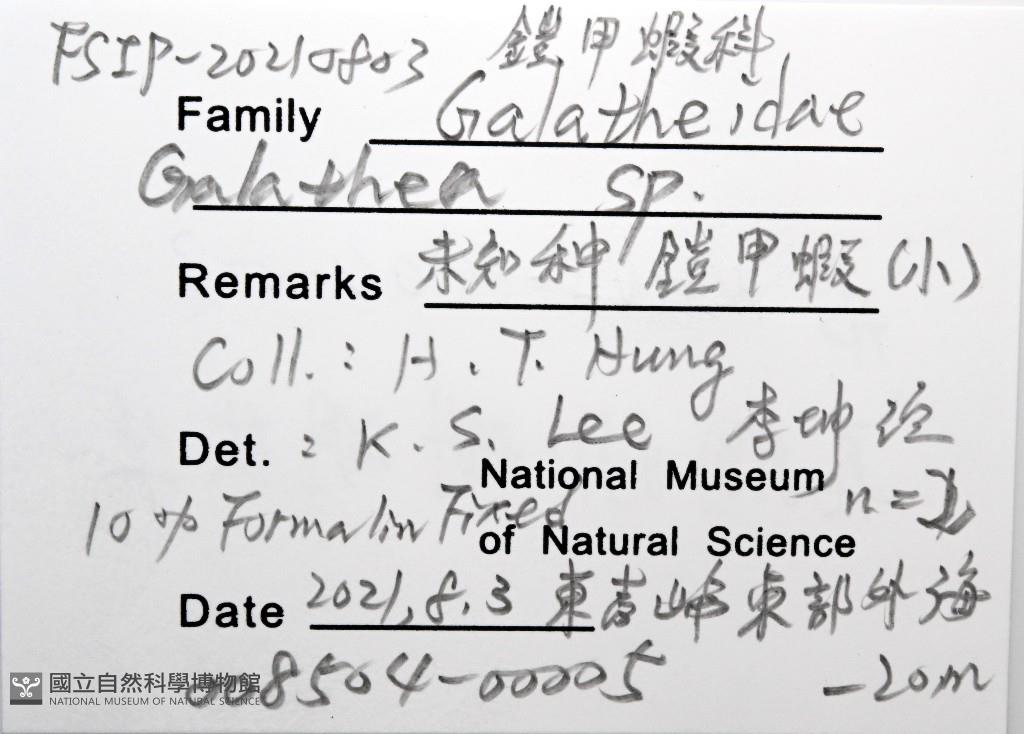 FSIP-20210803 鎧甲蝦科
Family Galatheidae
Galathea sp.
Remarks 未知种 鎧甲蝦(小)
Coll.: H. T. Hung
Det. : K. S. Lee 李坤瑄
National Museum n=
10% Formalin Fixed
of Natural Science
Date 2021.8.3 東吉嶼東部外海
8504-00005 -20m
國立自然科學博物館
NATIONAL MUSEUM OF NATURAL SCIENCE